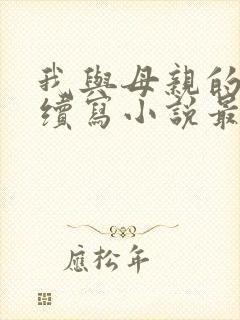 我與母親的
續寫小說最
應松年